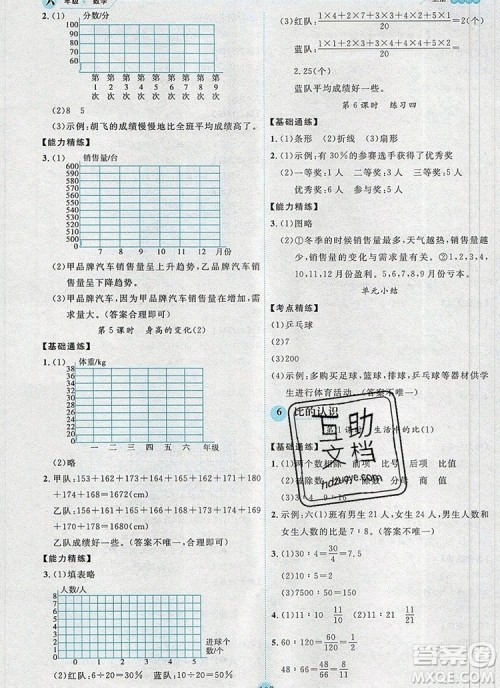 年级 数学
2. (1) 分数/分
100
90
80
70
60
50
第1次 第2次 第3次 第4次 第5次 第6次 第7次 第8次 第9次
(2)8 5
(3)示例:胡飞的成绩慢慢地比全班平均成绩高了。
【能力精练】
3. (1) 销售量/台
600
590
580
570
560
550
540
530
520
510
500
7 8 9 10 11 12 月份
(2)甲品牌汽车销售量呈上升趋势,乙品牌汽车销
售量呈下降趋势。
(3)示例:甲品牌汽车性能更好,更能满足客户
需求量大。(答案合理即可)
第5课时 身高的变化(2)
【基础通练】
1. (1) 体重/kg
一 二 三 四 五 六 年级
(2)略
2. 甲队:153+162+173+165+162+161+159+
170+174+168=1647(cm)
乙队:155+158+171+168+163+164+160+
172+175+184=1670(cm)
乙队成绩好一些。(答案不唯一,合理即可)
【能力精练】
3. (1)填表略
人数/人
8
7
6
5
4
3
2
1
0
1 2 3 4 5 6 7 8 9
进球个数/个
(2)红队:6÷20=30% 蓝队:2÷20=10%
(3)红队:(1×4+2×7+3×3+4×2+5×1)/20=
2(个)
蓝队:(1×4+2×6+3×5+4×1+5×2)/20=
2.25(个)
蓝队平均成绩好一些。
第6课时 练习四
【基础通练】
1. (1)条形 (2)折线 (3)扇形
2. (1)示例:有30%的参赛选手获得了优秀奖
(2)一等奖:2人 二等奖:3人 三等奖:5人
优秀奖:6人
【能力精练】
3. (1)图略
(2)①冬季的时候销售量最多,天气越热,销售量
越少,销售量的变化与需求量有关。②1,2,3,9,
10,11,12月份盈利。(答案不唯一)
单元小结
【考点精练】
(1)乒乓球
(2)7
(3)200
(4)示例:多购买足球,篮球,排球,乒乓球等器材供学
生进行体育活动。(答案不唯一)
6 比的认识
第1课时 生活中的比(1)
【基础通练】
1. (1)两个数相除 前项 比号 后项 比值
除数 分母 后项
2. 示例:六(1)班有男生21人,女生24人,男生人数和
女生人数的比是7∶8。(答案不唯一)
【能力精练】
3. (1)30∶4=30/4=15/2
(2)7500∶50=150
4. (1)10∶11 10/11 (2)11∶10 11/10
5. 60∶120=60/120=1/2
48∶66=48/66=8/11
互助文档
hdzuoye.com
作业精灵